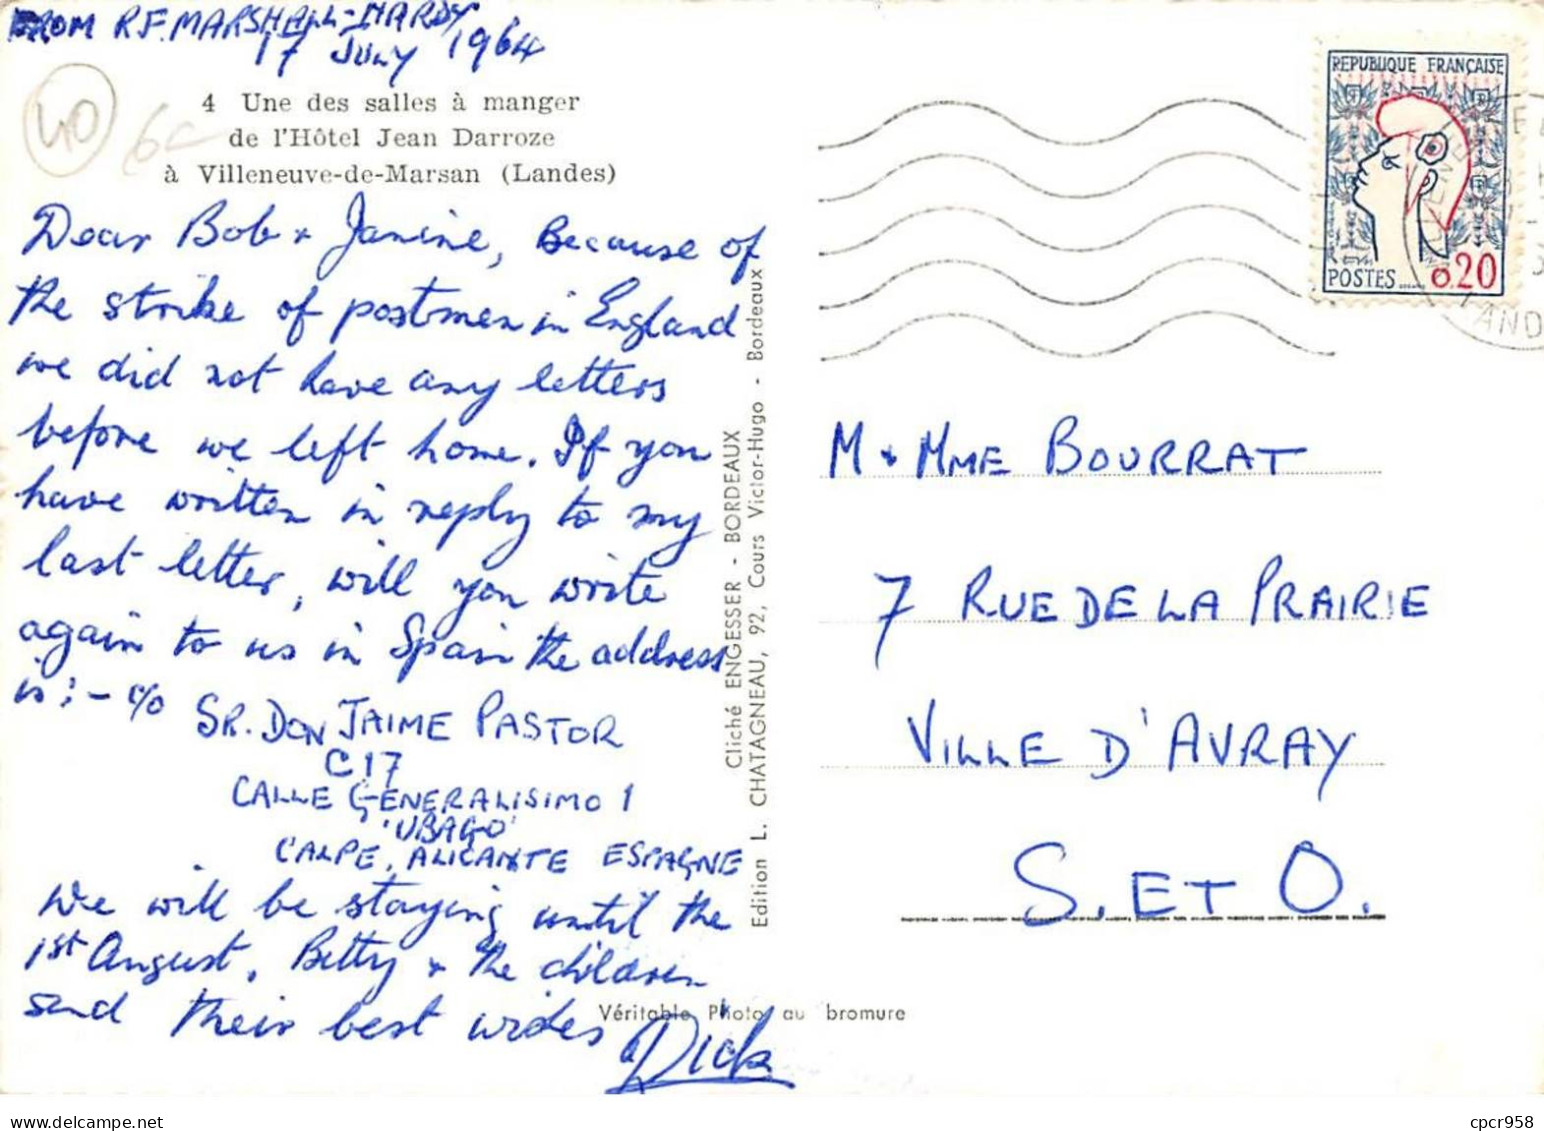 FROM R.F. MARSHALL-HARDY
17 JULY 1964
40
6c
4 Une des salles à manger
de l'Hôtel Jean Darroze
à Villeneuve-de-Marsan (Landes)
Dear Bob & Janine, Because of
the strike of postmen in England
we did not have any letters
before we left home. If you
have written in reply to my
last letter, will you write
again to us in Spain the address
is :- c/o
SR. DON JAIME PASTOR
C 17
CALLE GENERALISIMO 1
'UBAGO'
CALPE, ALICANTE ESPAGNE
We will be staying until the
1st August. Betty & the children
send their best wishes
Dick
Cliché ENGESSER - BORDEAUX
Edition L. CHATAGNEAU, 92, Cours Victor-Hugo - Bordeaux
Véritable Photo au bromure
REPUBLIQUE FRANÇAISE
POSTES
0.20
M & MME BOURRAT
7 RUE DE LA PRAIRIE
VILLE D'AVRAY
S. ET O.
cpcr958